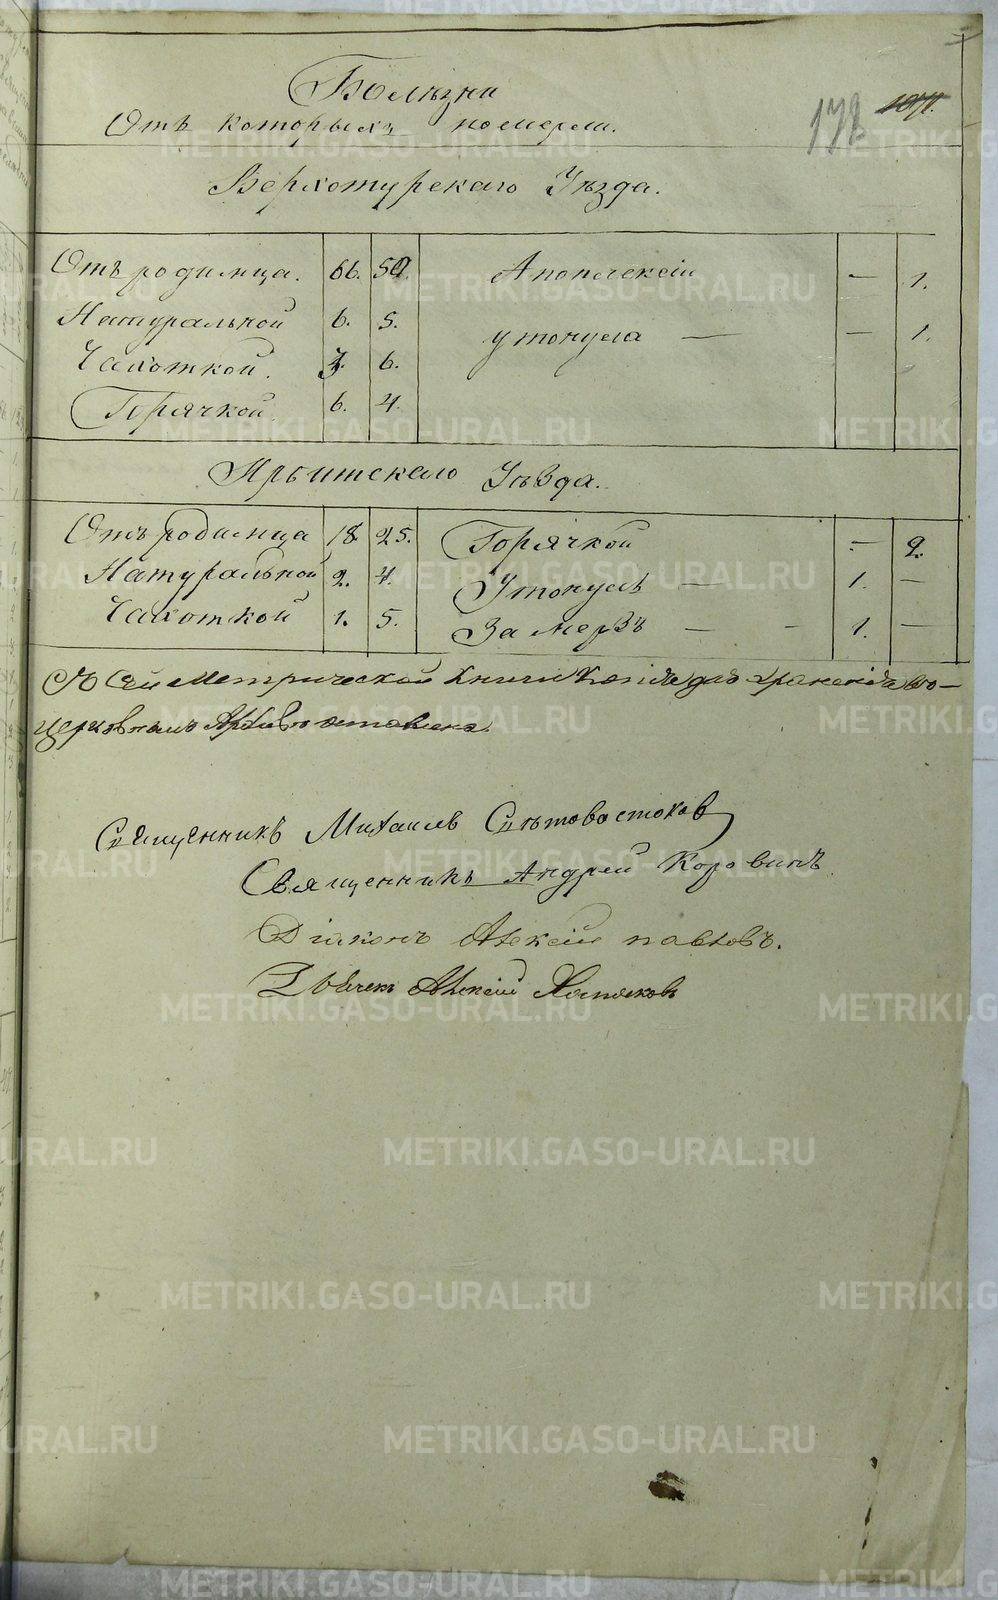 Болѣзни
Отъ которыхъ померли.
178
Верхотурскаго Уѣзда.
Отъ родимца. 66. 50. Апоплексіи — 1.
Натуральной 6. 5. утонула — — 1.
Чахоткой. 6.
Горячкой 6. 4.
Ирбитскаго Уѣзда.
Отъ родимца 18. 25. Горячкой — 2.
Натуральной 2. 4. Утонулъ — 1. —
Чахоткой 1. 5. Замерзъ — - 1. —
Съ сей Метрической книги копія для храненія въ
церковномъ Архивѣ оставлена.
Священникъ Михаилъ Свѣтовостоков
Священникъ Андрей Коровинъ
Діаконъ Алексій Павловъ.
Дьячекъ Алексій
METRIKI.GASO-URAL.RU